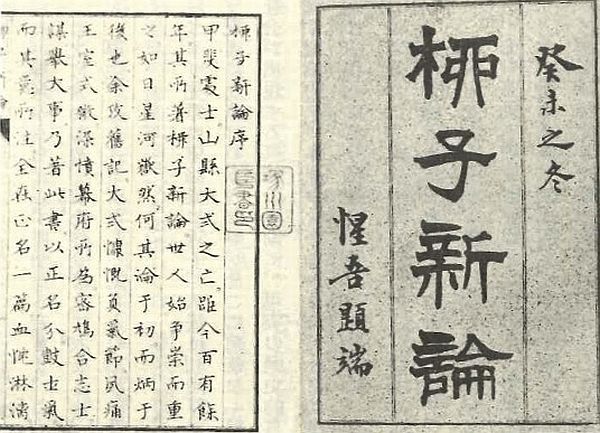 癸未之冬
柳子新論
惺吾題端
柳子新論序
甲斐處士山縣大弐之亡距今百有餘
年其所著柳子新論世人始爭崇而重
之如日星河嶽然何其淪于初而炳于
後也余攷舊記大弐慷慨負氣節夙痛
王室式微深憤幕府所為鳩合志士
謀舉大事乃著此書以正名分鼓士氣
而其意所注全在正名一篇血性淋漓